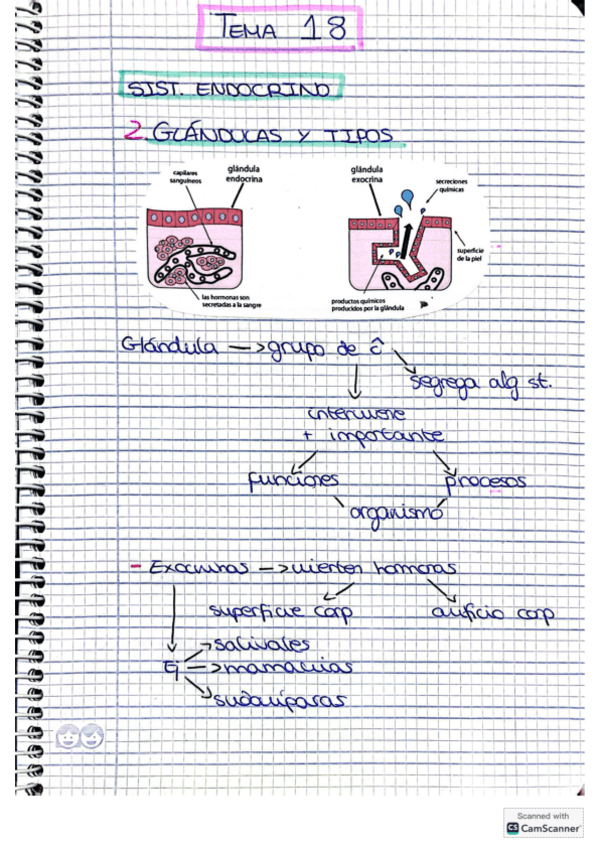 TEMA 18
SIST. ENDOCRINO
2. GLÁNDULAS Y TIPOS
capilares
sanguíneos
glándula
endocrina
las hormonas son
secretadas a la sangre
glándula
exocrina
secreciones
químicas
superficie
de la piel
productos químicos
producidos por la glándula
Glándula → grupo de ĉ
segrega alg st.
interviene
+ importante
funciones procesos
organismo
- Exocrinas → vierten hormonas
superficie corp orificio corp
Ej → salivales
→ mamarias
→ sudoríparas
Scanned with
CS CamScanner